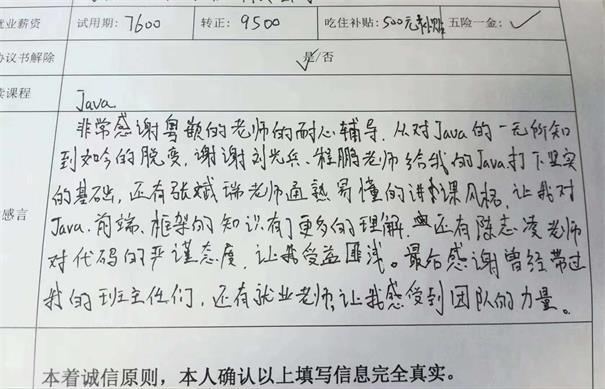 就业薪资 试用期：7600 转正：9500 吃住补贴：500元 五险一金：✓
协议书解除 是/否
读课程 Java
感言
非常感谢粤嵌的老师的耐心辅导，从对Java的一无所知
到如今的脱变，谢谢刘光兵、程鹏老师给我的Java打下坚实
的基础，还有张斌瑞老师通熟易懂的讲课风格，让我对
Java、前端、框架的知识有了更多的理解，还有陈志凌老师
对代码的严谨态度，让我受益匪浅。最后感谢曾经带过
我的班主任们，还有就业老师，让我感受到团队的力量。
本着诚信原则，本人确认以上填写信息完全真实。